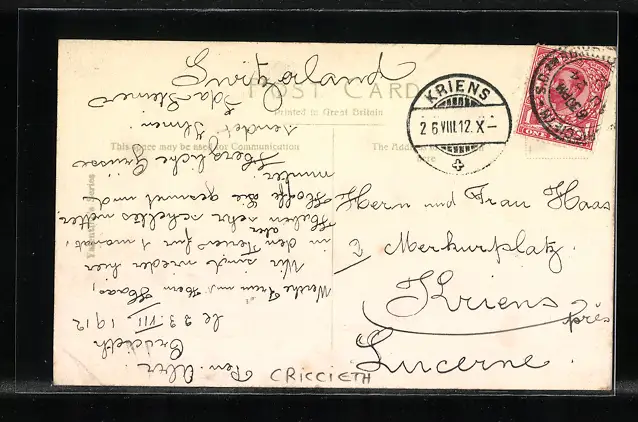 POST CARD
Printed in Great Britain
This space may be used for Communication
The Address
here
KRIENS
26.VIII.12.X-
ONE
Herrn und Frau Haas
Merkurplatz.
Kriens
près
Lucerne.
CRICCIETH
Criccieth
le 23. VII 1912
Werte Frau und Herr Haas,
Wir sind wieder hier
in den Ferien für 1 monat,
Haben aber sehr schlechtes wetter.
Hoffe Sie gesund und
munter
Herzliche Grüsse
sendet Ihnen
Ida
England
Series